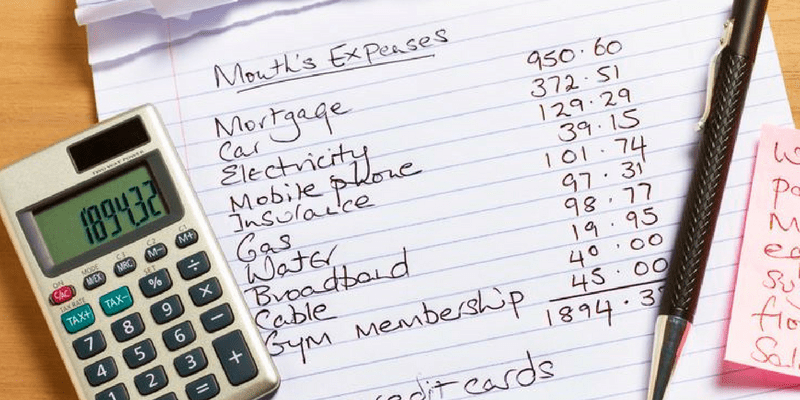 Month's Expenses
Mortgage 950.60
Car 372.51
Electricity 129.29
Mobile phone 39.15
Insurance 101.74
Gas 97.31
Water 98.77
Broadband 19.95
Cable 40.00
Gym Membership 45.00
1894.3
credit cards
TWO WAY POWER
1894.32
ON MODE C-1 C-2 C-3
C/AC M/EX MRC M- M+
TAX RATE SET
TAX+ TAX- % ÷
7 8 9 × −
4 5 6 +
1 2 3 =